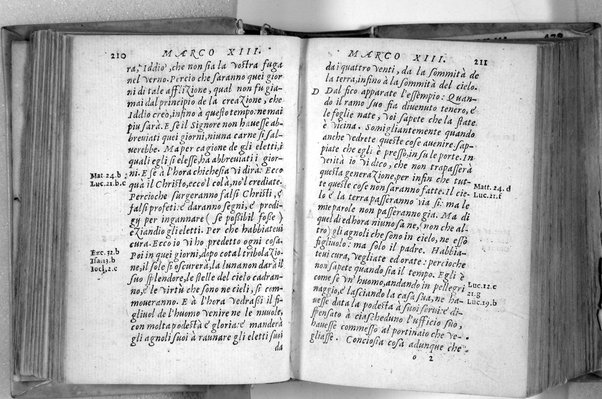 210 MARCO XIII.
ra, Iddio, che non sia la vostra fuga
nel verno. Percio che saranno quei gior
ni di tale afflizione, qual non fu gia-
mai dal principio de la creazione, che
Iddio creò, infino a questo tempo: ne mai
piu sarà. E se il Signore non havesse ab-
breviati quei giorni, niuna carne si sal-
verebbe. Ma per cagione de gli eletti, i
quali egli s'elesse, ha abbreviati i gior-
Mat. 24. b
ni. E se à l'hora chi che sia vi dira: Ecco
Luc. 21. b. c
quà il Christo, ecco l colà, no'l crediate.
Percioche surgeranno falsi Christi, e
falsi profeti: e daranno segni, e prodi-
gy per ingannare (se possibil fosse)
eziandio gli eletti. Per che habbiate vi
Eze. 32. b
cura. Ecco io vi ho predetto ogni cosa.
Isa. 13. b
Poi in quei giorni, dopo cotal tribolazio
Ioel. 2. c
ne, il sole si oscurerà, la luna non darà il
suo splendore, le stelle del cielo cadran-
no, e le virtù che sono ne cieli, si com-
moveranno. E à l'hora vedrassi il fi-
gliuol de l'huomo venire ne le nuvole,
con molta podestà e gloria: e manderà
gli agnoli suoi à raunare gli eletti suoi
da
MARCO XIII. 211
da i quattro venti, da la sommità de
la terra, infino à la sommità del cielo.
D Dal fico apparate l'essempio: Quan-
do il ramo suo fia divenuto tenero, e
le foglie nate, voi sapete che la state
è vicina. Somigliantemente quando
anche vedrete queste cose avenire, sap-
piate che egli è presso, in su le porte. In
verità io vi dico, che non trapasserà
questa generazione, per infin che tut-
Matt. 24. d
te queste cose non saranno fatte. Il cie-
Luc. 21. f
lo e la terra passeranno via sì: ma le
mie parole non passeranno gia. Ma di
quel dì ed hora niuno sa ne, non che al-
tro, gli agnoli che sono in cielo, ne esso
figliuolo: ma solo il padre. Habbia-
te vi cura, vegliate ed orate: percioche
non sapete quando sia il tempo. Egli è
Luc. 12. c
come s'è un' huomo, andando in pellegri
21. g
naggio, e lasciando la casa sua, ne ha-
Luc. 19. b
vesse data la podestà à suoi servi: e di-
spensato à ciascheduno l'ufficio suo,
havesse commesso al portinaio che ve-
gliasse. Conciosia cosa adunque che
o 2